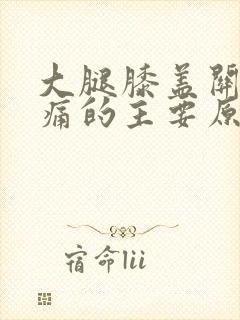 大腿膝盖关
痛的主要原
宿命lii